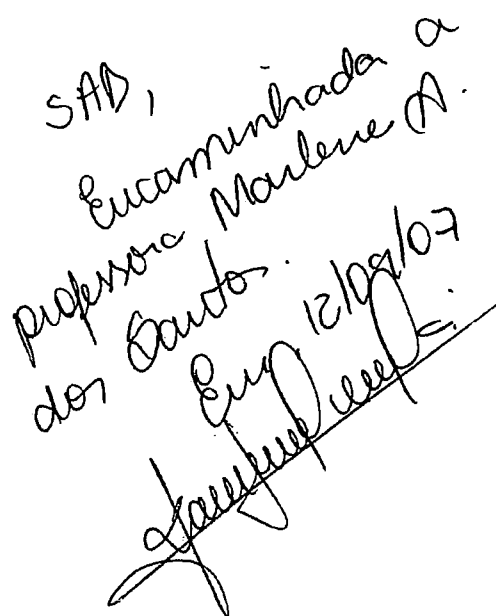 SAD,
Encaminhada a
professora Marlene A.
dos Santos.
Em 12/09/07